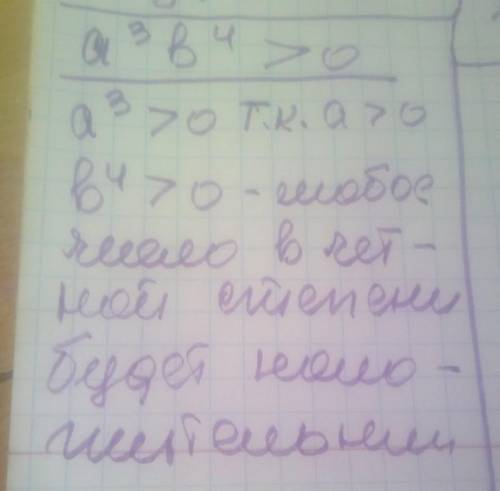 a³ b⁴ > 0
a³ > 0 т.к. a > 0
b⁴ > 0 - любое
число в чет-
ной степени
будет поло-
жительным